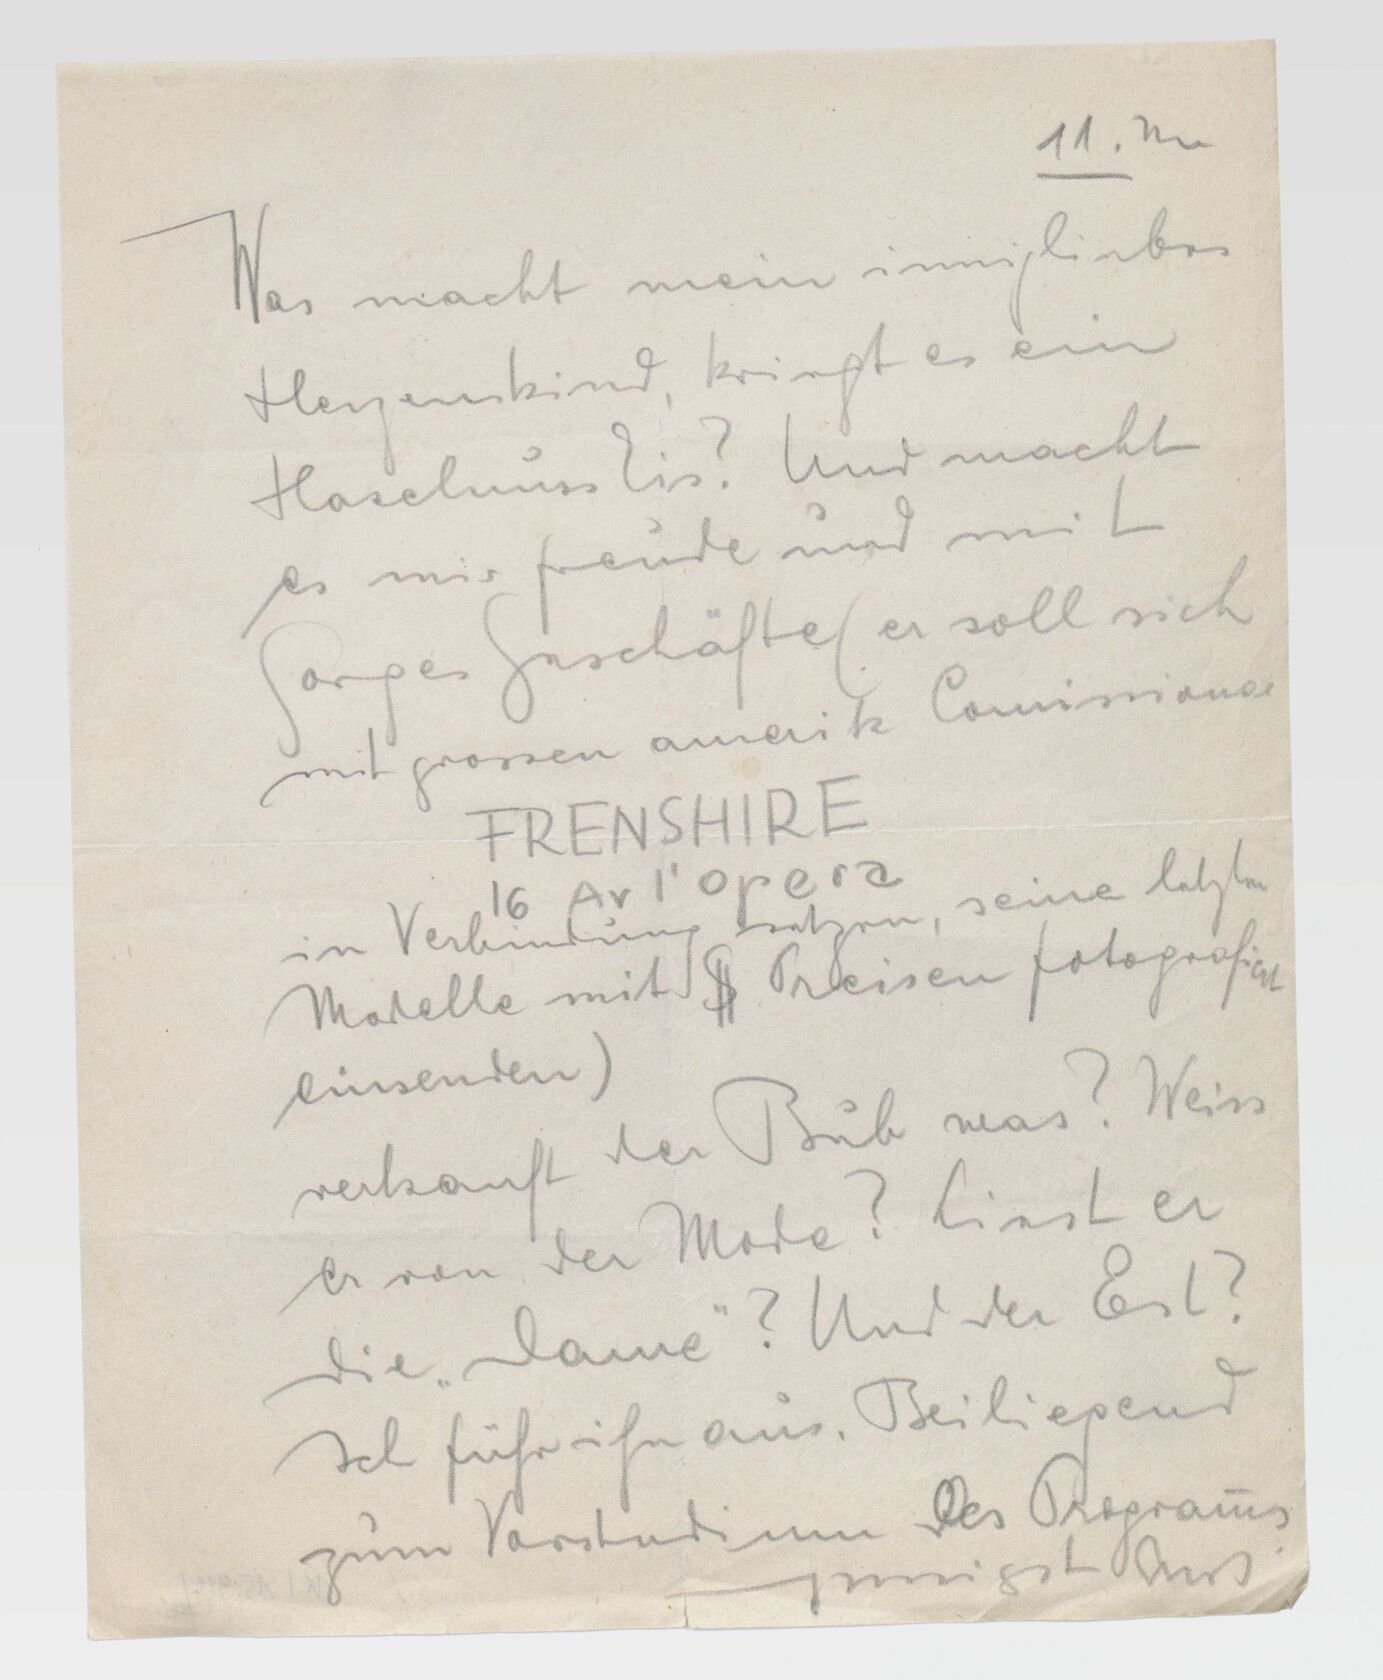 11. Uhr
Was macht mein innigliebes
Herzenskind, kriegt es ein
Haselnuss Eis? Und macht
es mir freude und mit
Sorges Geschäfte (er soll sich
mit grossen amerik Comissionae
FRENSHIRE
16 Av l'opera
in Verbindung setzen, seine letzten
Modelle mit $ Preisen fotografiert
einsenden)
verkauft der Bub was? Weiss
er von der Mode? Liest er
die „Dame"? Und der Est?
Ich führe ihn aus. Beiliegend
zum Vorstudium des Programms
innigst